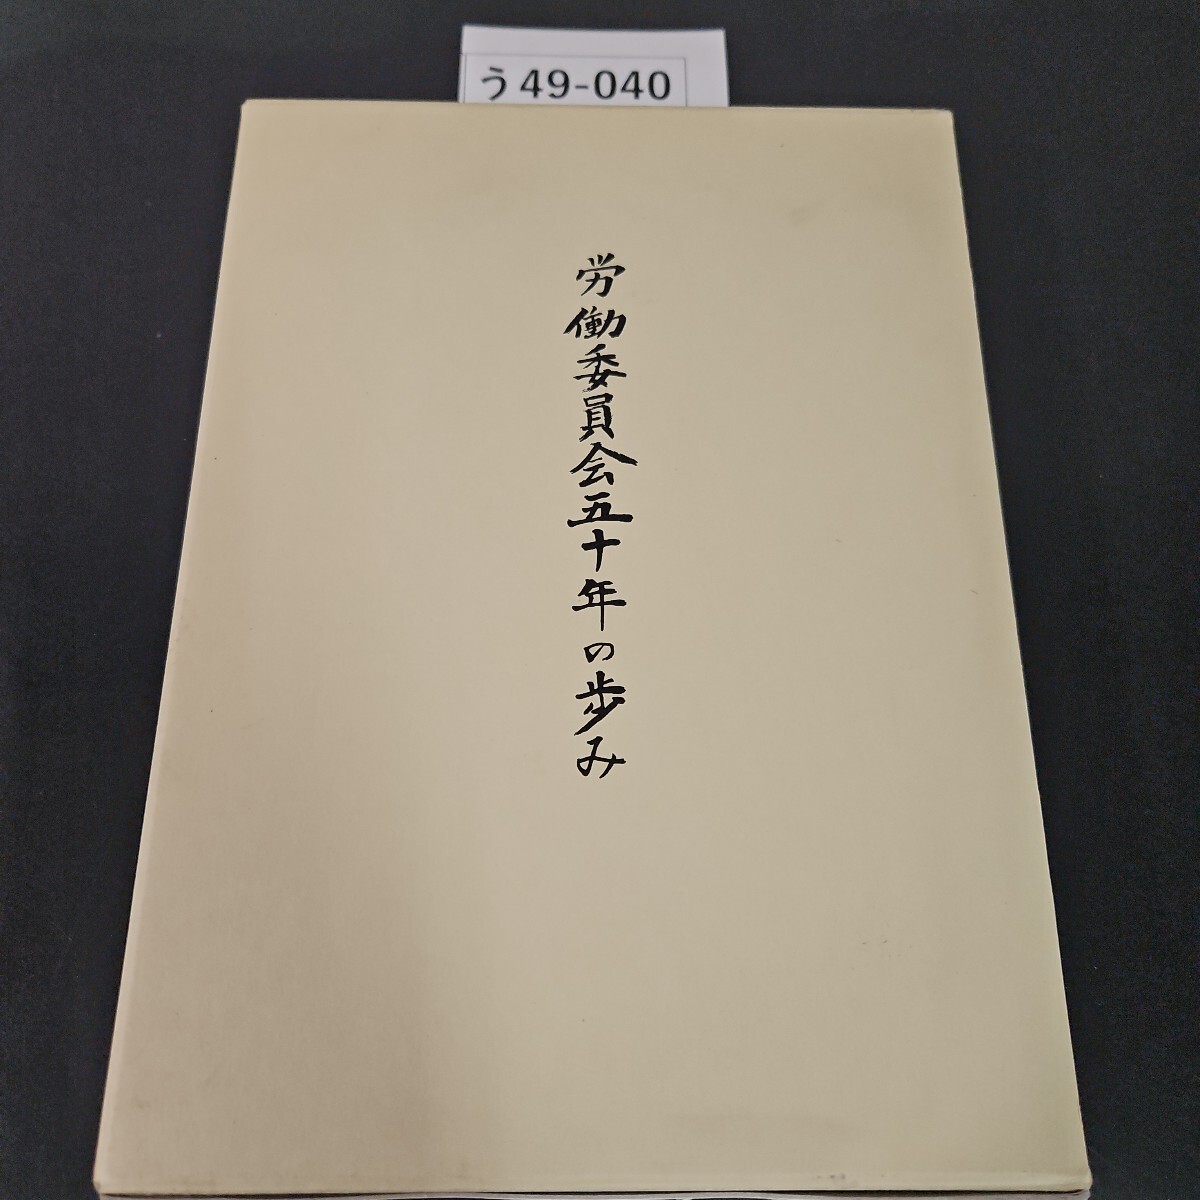 う49-040
労働委員会五十年の歩み